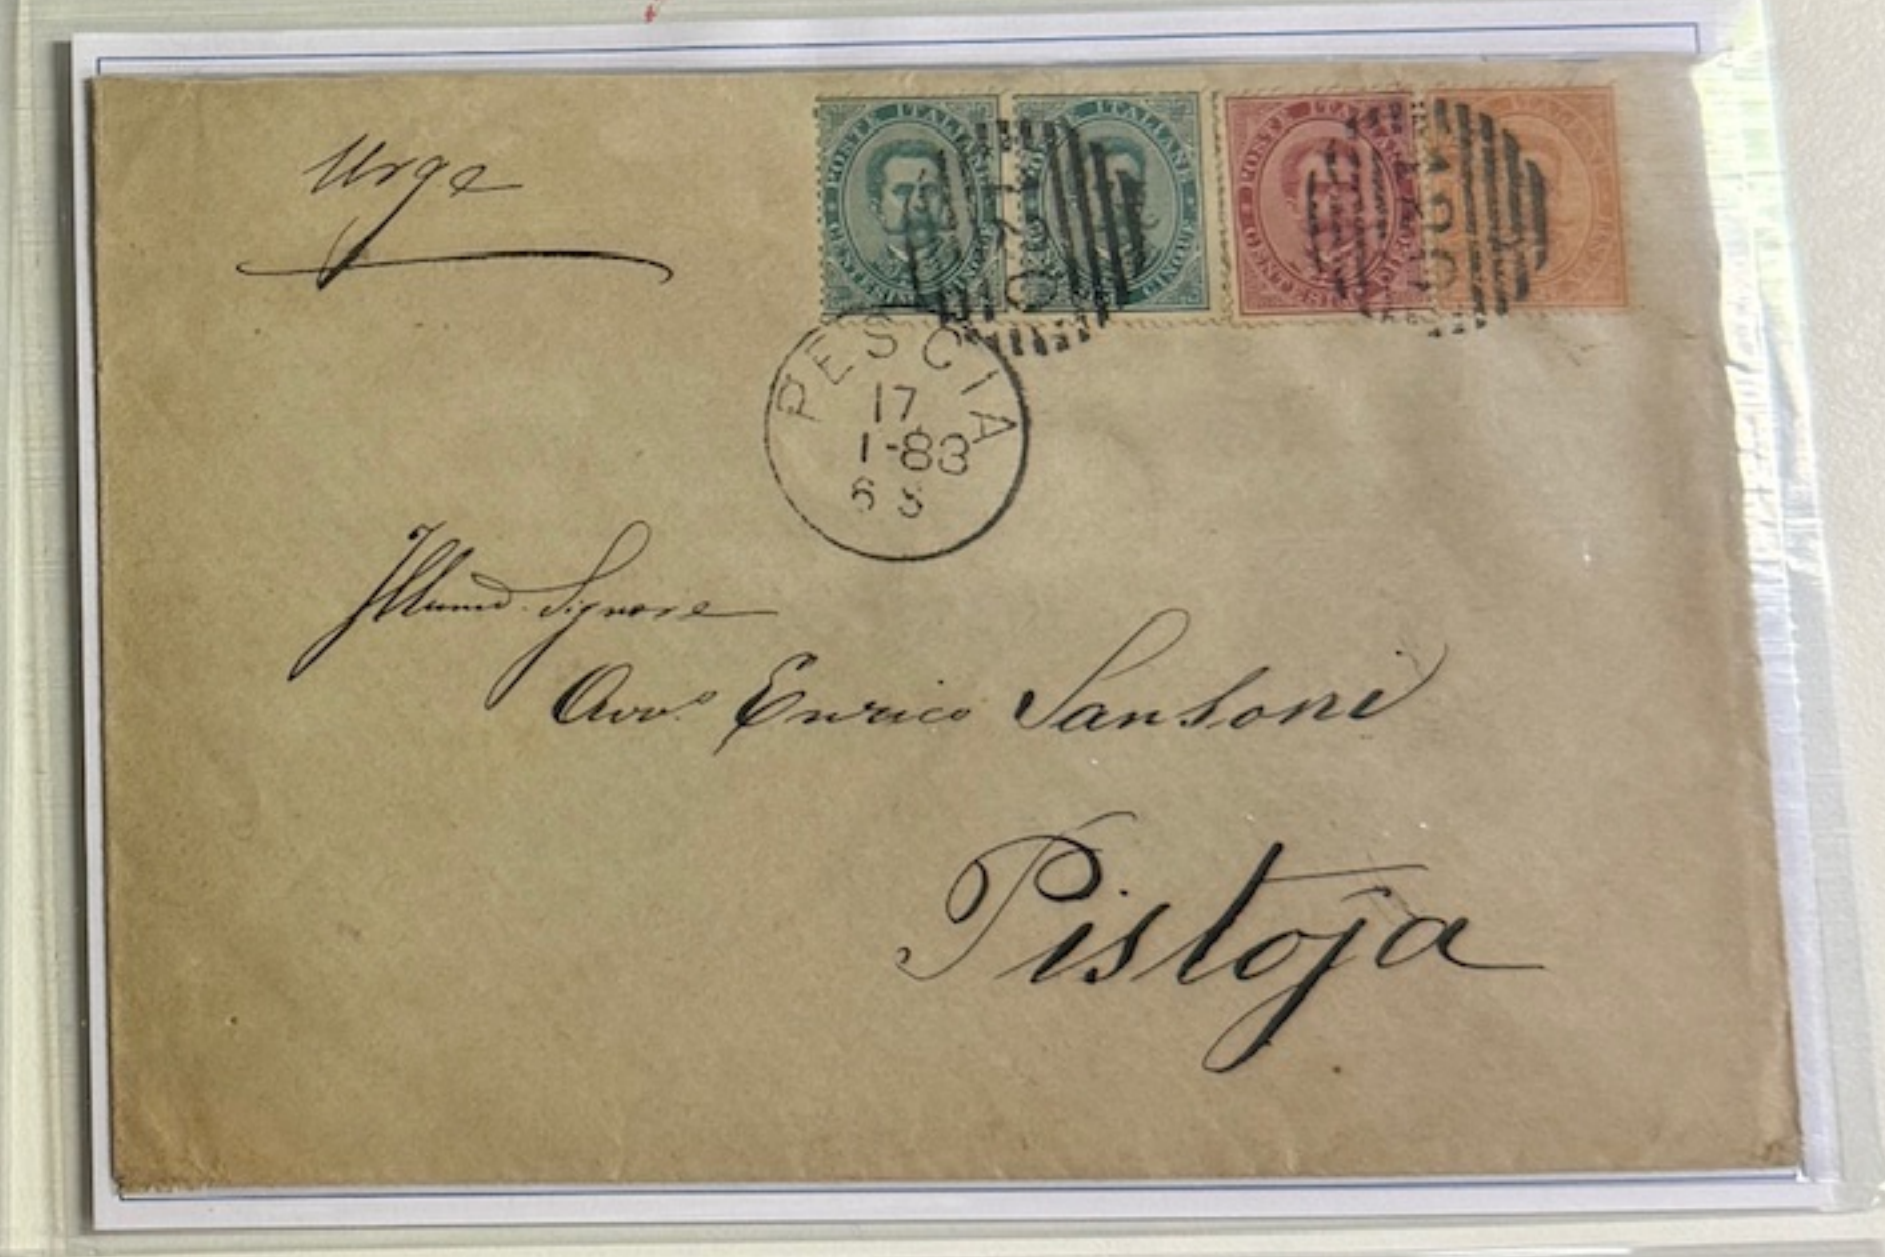 Urge
POSTE ITALIANE
POSTE ITALIANE
POSTE ITALIANE
PESCIA
17
1-83
6 S
Illumo. Signore
Avvo. Enrico Sansoni
Pistoja